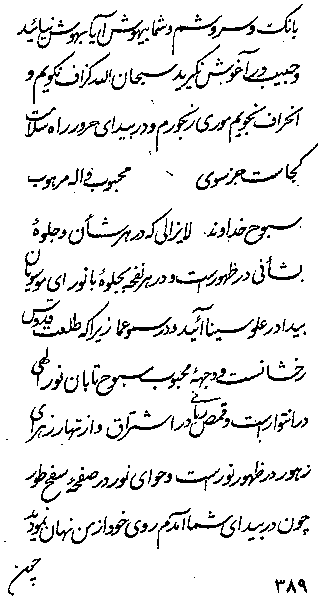 بانگ و سروشم و شما بیهوش آیا بهوش نیائید
و حبیب در آغوش نگیرید سبحان الله گزاف نگویم و
انحراف نجویم موری رنجورم و در بیدای حرور راه سلامت
کجاست جز سوی محبوب واله مرهوب
سبوح خداوند لایزالی که در هر شأن و جلوهٔ
بشأنی در ظهور است و در هر نفحه بجلوهٔ بانور ای موسویان
بیدا در علو سینا آئید و در سمو عما زیرا که طلعت قدوس
رخشانست و وجههٔ محبوب سبوح تابان نور الهی
در انتوار است و قمص ربانی در اشتراق و از تهار زهرای
زهور در ظهور نور است و حوای نور در صفحهٔ سفح طور
چون در بیدای شما آمدم روی خود از من نهان نمودید
چون
۳۸۹